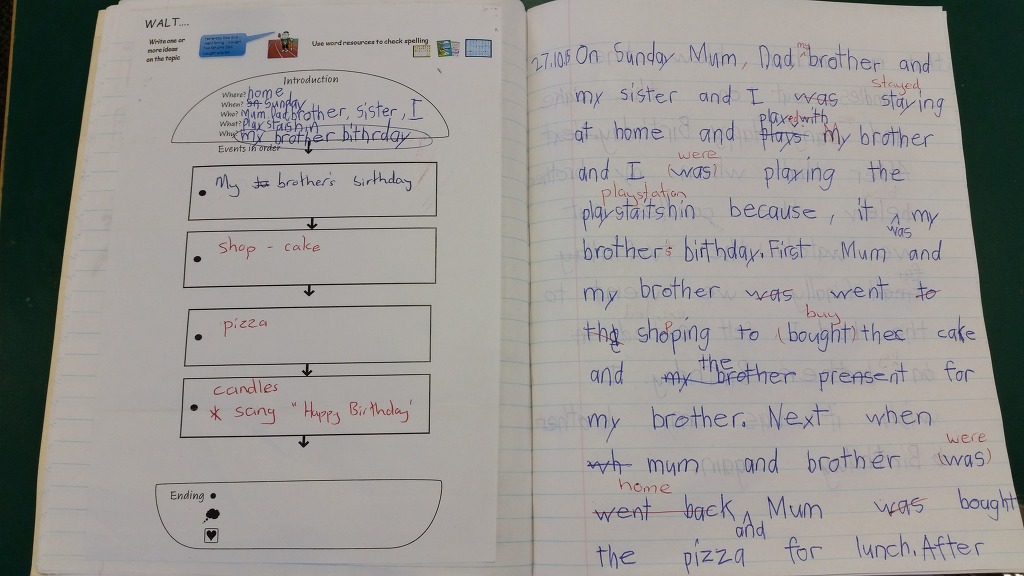 WALT....
Write one or
more ideas
on the topic
Use word resources to check spelling
Introduction
Where? home
When? Sunday
Who? Mum Dad brother, sister, I
What? playstashin
Why? my brother bithrday
Events in order
My brother's birthday
shop - cake
pizza
candles
* sang "Happy Birthday"
Ending
27.10.15 On Sunday Mum, Dad, my brother and
my sister and I was stayed staying
at home and plays played with My brother
and I (was) were playing the
playstaitshin playstation because, it was my
brother's birthday. First Mum and
my brother was went to
the shopping to (bought) buy the cake
and my brother the prensent for
my brother. Next when
wh mum and brother (was) were
went back home and Mum was bought
the pizza for lunch. After